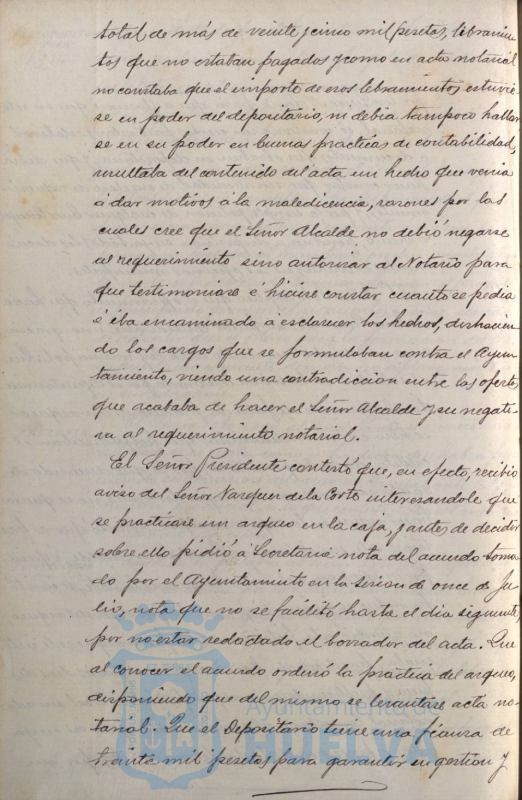 total de más de veinte y cinco mil pesetas, libramien
tos que no estaban pagados y como en acta notarial
no constaba que el importe de esos libramientos estuvie
se en poder del depositario, ni debia tampoco hallar
se en su poder en buenas practicas de contabilidad,
resultaba del contenido del acta un hecho que venia
á dar motivos á la maledicencia, razones por las
cuales cree que el Señor Alcalde no debió negarse
al requerimiento sino autorizar al Notario para
que testimoniase é hiciese constar cuanto se pedia
é iba encaminado á esclarecer los hechos, deshacien
do los cargos que se formulaban contra el Ayun
tamiento, viendo una contradiccion entre las ofertas
que acababa de hacer el Señor Alcalde y su negati
va al requerimiento notarial.
El Señor Presidente contestó que, en efecto, recibio
aviso del Señor Vazquez de la Corte interesandole que
se practicase un arqueo en la caja, y antes de decidir
sobre ello pidió á Secretaria nota del acuerdo toma
do por el Ayuntamiento en la sesion de once de Ju
lio, nota que no se facilitó hasta el dia siguiente,
por no estar redactado el borrador del acta. Que
al conocer el acuerdo ordenó la practica del arqueo,
disponiendo que del mismo se levantase acta no
tarial. Que el Depositario tiene una fianza de
treinta mil pesetas para garantir su gestion y
Ayuntamiento de
HUELVA